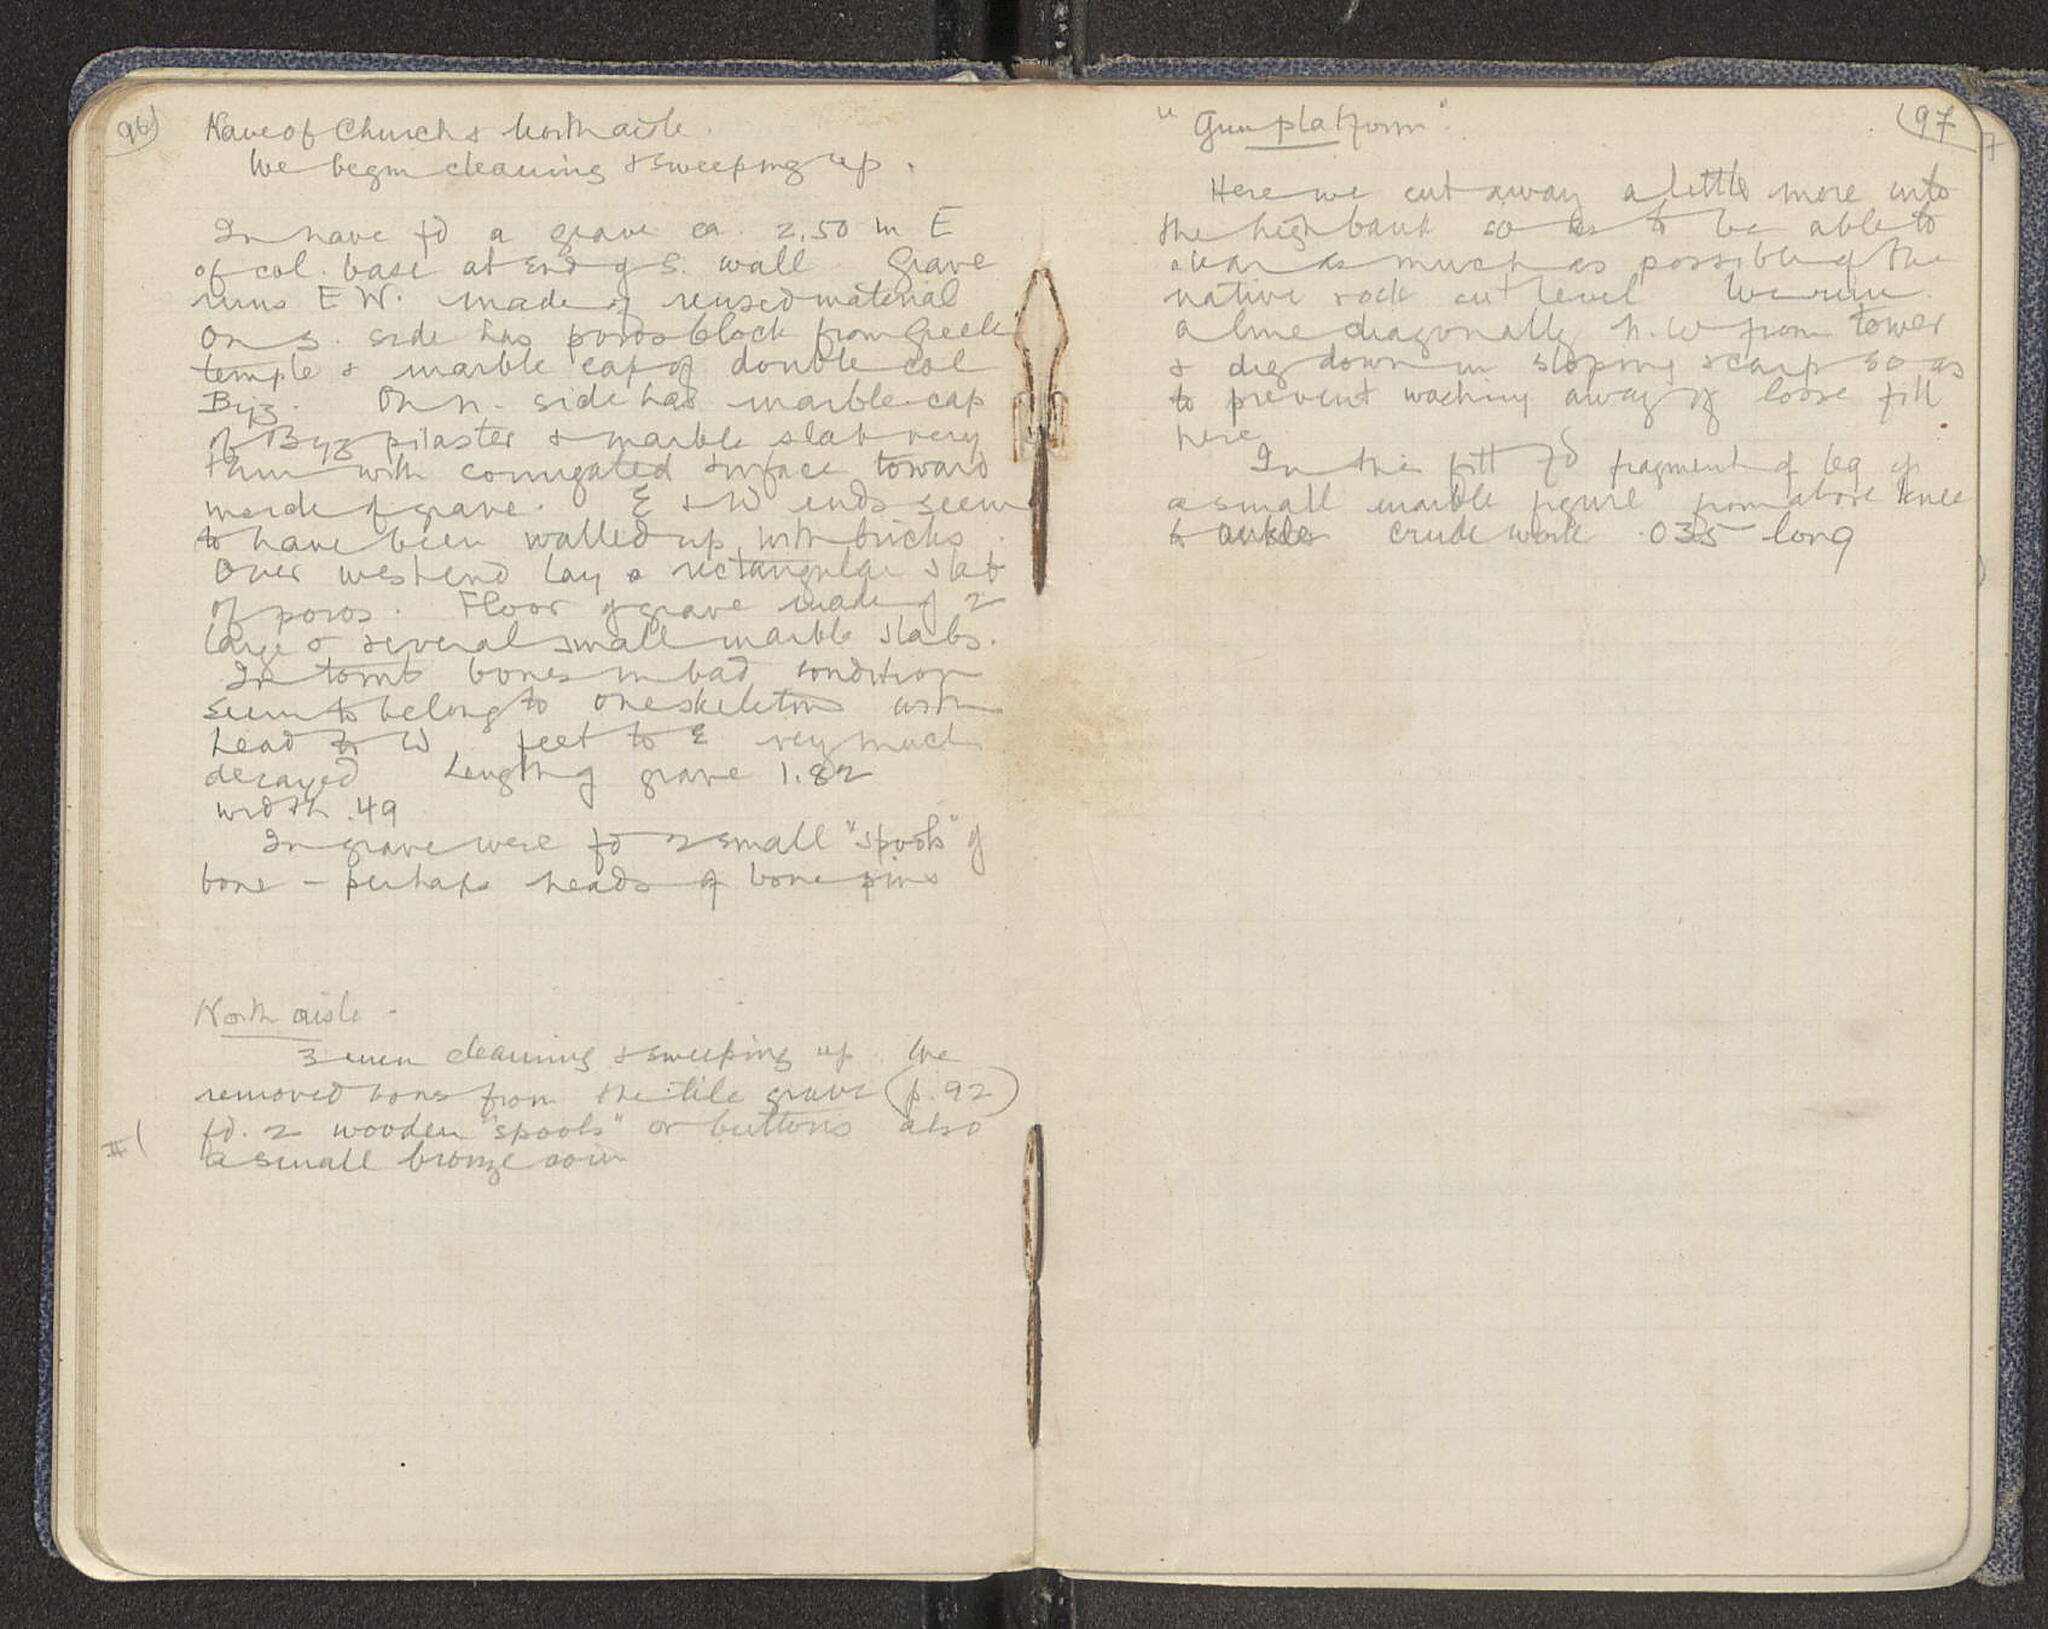 96)
Nave of Church & North aisle.
We begin cleaning & sweeping up.
In nave fd a grave ca. 2.50 m E
of col. base at End of S. wall Grave
runs E W. made of reused material
On S. side has poros block from Greek
temple & marble cap of double col
Byz. On N. side has marble cap
of Byz pilaster & marble slab very
thin with corrugated surface toward
inside of grave. E & W ends seem
to have been walled up with bricks.
Over west end lay a rectangular slab
of poros. Floor of grave made of 2
large & several small marble slabs.
In tomb bones in bad condition
seem to belong to one skeleton with
head to W feet to E very much
decayed Length of grave 1.82
width .49
In grave were fd 2 small "spools" of
bone – perhaps heads of bone pins
North aisle -
3 men cleaning & sweeping up. We
removed bones from the tile grave (p. 92)
fd. 2 wooden "spools" or buttons also
II (
a small bronze coin
(97
"Gun platform".
Here we cut away a little more into
the high bank so as to be able to
clear as much as possible of the
native rock cut level We run
a line diagonally N.W from tower
& dig down in sloping scarp so as
to prevent washing away of loose fill
here
In the fill fd fragment of leg of
a small marble figure from above knee
to ankle crude work .035 long